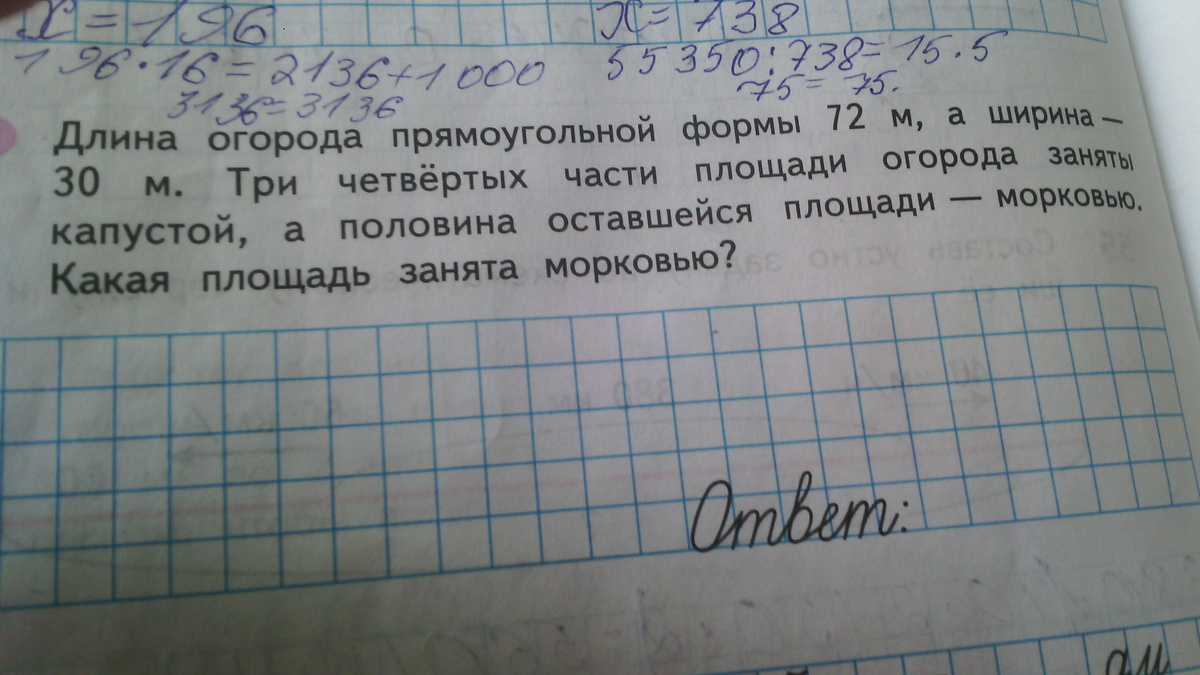 x = 196 x = 738
196 · 16 = 2136 + 1 000 55350 : 738 = 15 · 5
3136 = 3136 75 = 75.
Длина огорода прямоугольной формы 72 м, а ширина —
30 м. Три четвёртых части площади огорода заняты
капустой, а половина оставшейся площади — морковью.
Какая площадь занята морковью?
Ответ: